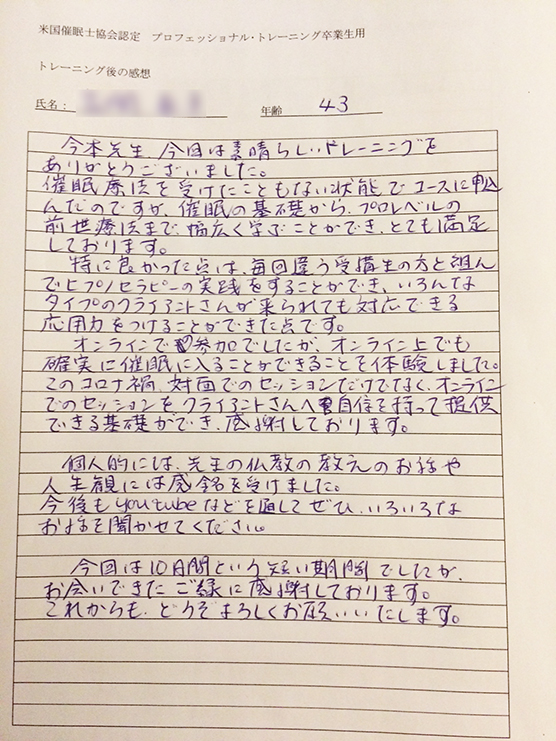 米国催眠士協会認定　プロフェッショナル・トレーニング卒業生用
トレーニング後の感想
氏名：
年齢　43
今本先生、今回は素晴らしいトレーニングを
ありがとうございました。
催眠療法を受けたこともない状態でコースに申込
んだのですが、催眠の基礎から、プロレベルの
前世療法まで、幅広く学ぶことができ、とても満足
しております。
特に良かった点は、毎回違う受講生の方と組ん
でヒプノセラピーの実践をすることができ、いろんな
タイプのクライアントさんが来られても対応できる
応用力をつけることができた点です。
オンラインで参加でしたが、オンライン上でも
確実に催眠に入ることができることを体験しました。
このコロナ禍、対面でのセッションだけでなく、オンライン
でのセッションをクライアントさんへ自信を持って提供
できる基礎ができ、感謝しております。
個人的には、先生の仏教の教えのお話や
人生観には感銘を受けました。
今後もyoutubeなどを通してぜひ、いろいろな
お話を聞かせてください。
今回は10日間という短い期間でしたが、
お会いできたご縁に感謝しております。
これからも、どうぞよろしくお願いいたします。